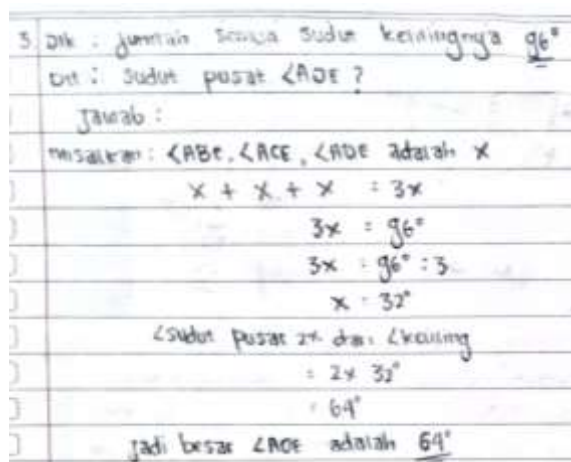 3. Dik : jumlah semua sudut kelilingnya 96°
Dit : Sudut pusat ∠AOE ?
Jawab :
misalkan : ∠ABE, ∠ACE, ∠ADE adalah x
x + x + x = 3x
3x = 96°
3x = 96° : 3
x = 32°
∠sudut pusat 2x dari ∠keliling
= 2x 32°
= 64°
Jadi besar ∠AOE adalah 64°